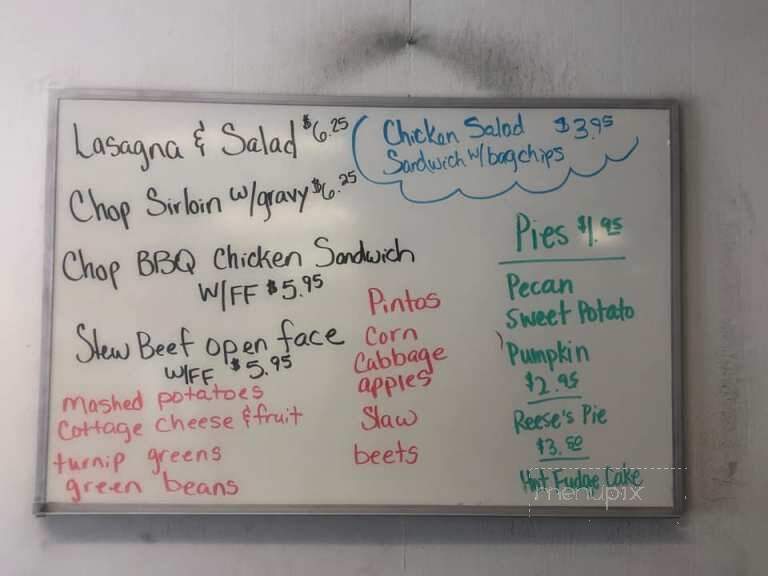 Lasagna & Salad $6.25
Chop Sirloin w/gravy $6.25
Chop BBQ Chicken Sandwich
W/FF $5.95
Stew Beef open face
W/FF $5.95
mashed potatoes
Cottage cheese & fruit
turnip greens
green beans
Pintos
Corn
Cabbage
apples
Slaw
beets
Chicken Salad $3.95
Sandwich w/bag chips
Pies $1.95
Pecan
Sweet Potato
Pumpkin
$2.95
Reese's Pie
$3.50
Hot Fudge Cake
menupix